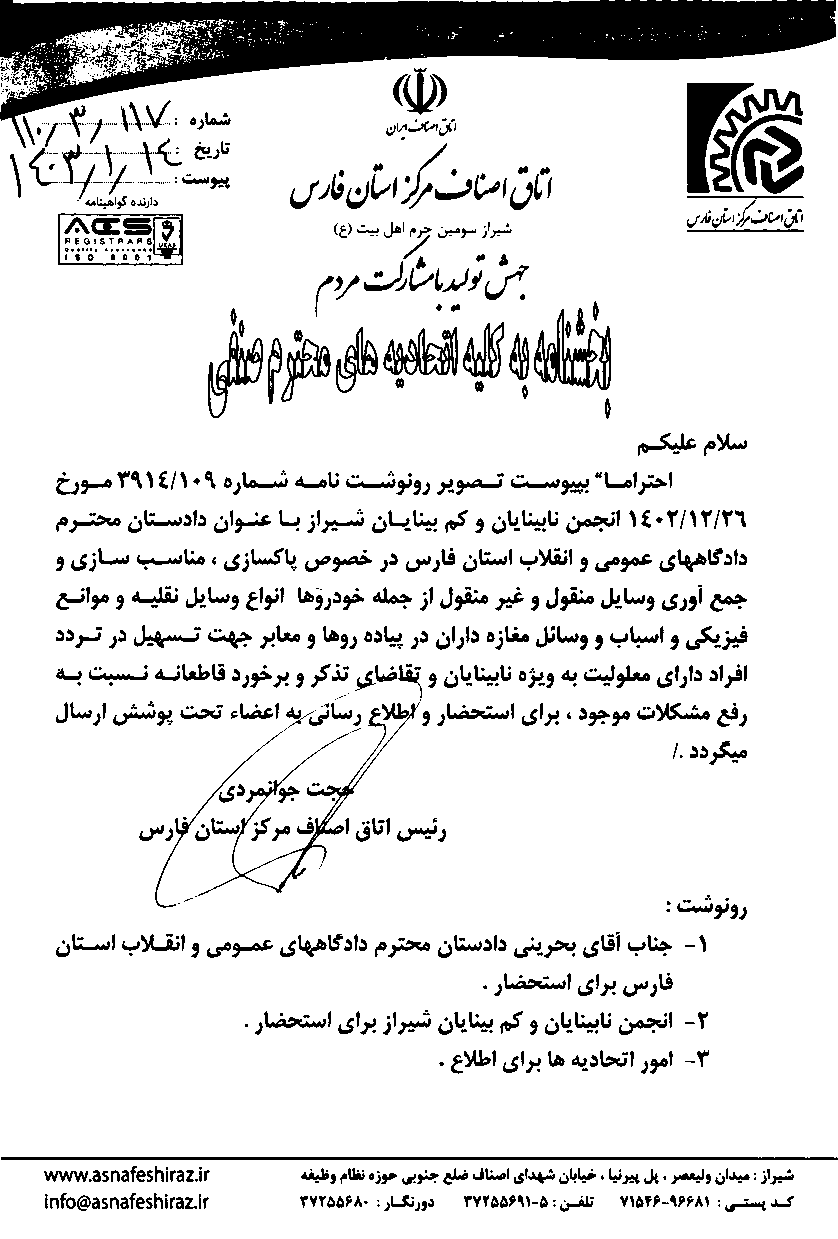 اتاق اصناف ایران
اتاق اصناف مرکز استان فارس
شیراز سومین حرم اهل بیت (ع)
جهش تولید با مشارکت مردم
شماره : ۱۱۰/۳/۱۱۷
تاریخ : ۱۴۰۳/۱/۱۴
پیوست :
دارنده گواهینامه
ACS
REGISTRARS
ISO 9001
UKAS
اتاق اصناف مرکز استان فارس
بخشنامه به کلیه اتحادیه های محترم صنفی
سلام علیکم
احتراما" بپیوست تصویر رونوشت نامه شماره ۳۹۱٤/۱۰۹ مورخ
۱٤۰۲/۱۲/۲٦ انجمن نابینایان و کم بینایان شیراز با عنوان دادستان محترم
دادگاههای عمومی و انقلاب استان فارس در خصوص پاکسازی ، مناسب سازی و
جمع آوری وسایل منقول و غیر منقول از جمله خودروها انواع وسایل نقلیه و موانع
فیزیکی و اسباب و وسائل مغازه داران در پیاده روها و معابر جهت تسهیل در تردد
افراد دارای معلولیت به ویژه نابینایان و تقاضای تذکر و برخورد قاطعانه نسبت به
رفع مشکلات موجود ، برای استحضار و اطلاع رسانی به اعضاء تحت پوشش ارسال
میگردد ./
حجت جوانمردی
رئیس اتاق اصناف مرکز استان فارس
رونوشت :
۱- جناب آقای بحرینی دادستان محترم دادگاههای عمومی و انقلاب استان
فارس برای استحضار .
۲- انجمن نابینایان و کم بینایان شیراز برای استحضار .
۳- امور اتحادیه ها برای اطلاع .
شیراز : میدان ولیعصر ، پل پیرنیا ، خیابان شهدای اصناف ضلع جنوبی حوزه نظام وظیفه
کد پستی : ۹۶۶۸۱-۷۱۵۴۶ تلفن : ۵-۳۷۲۵۵۶۹۱ دورنگار : ۳۷۲۵۵۶۸۰
www.asnafeshiraz.ir
info@asnafeshiraz.ir